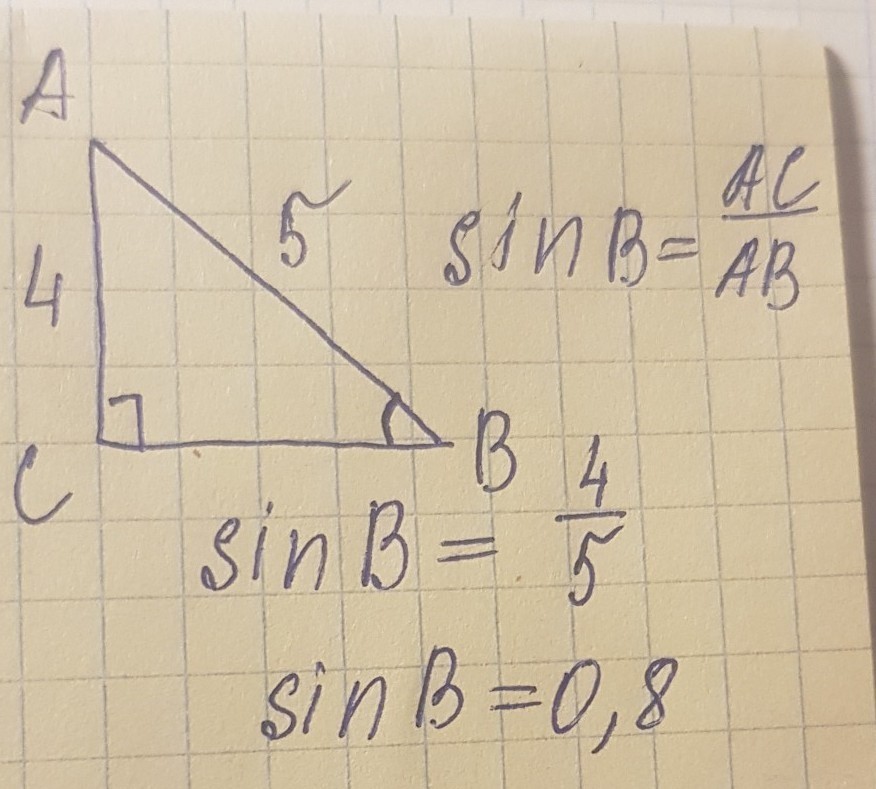 A
5
4
sin B = AC/AB
C
B
sin B = 4/5
sin B = 0,8